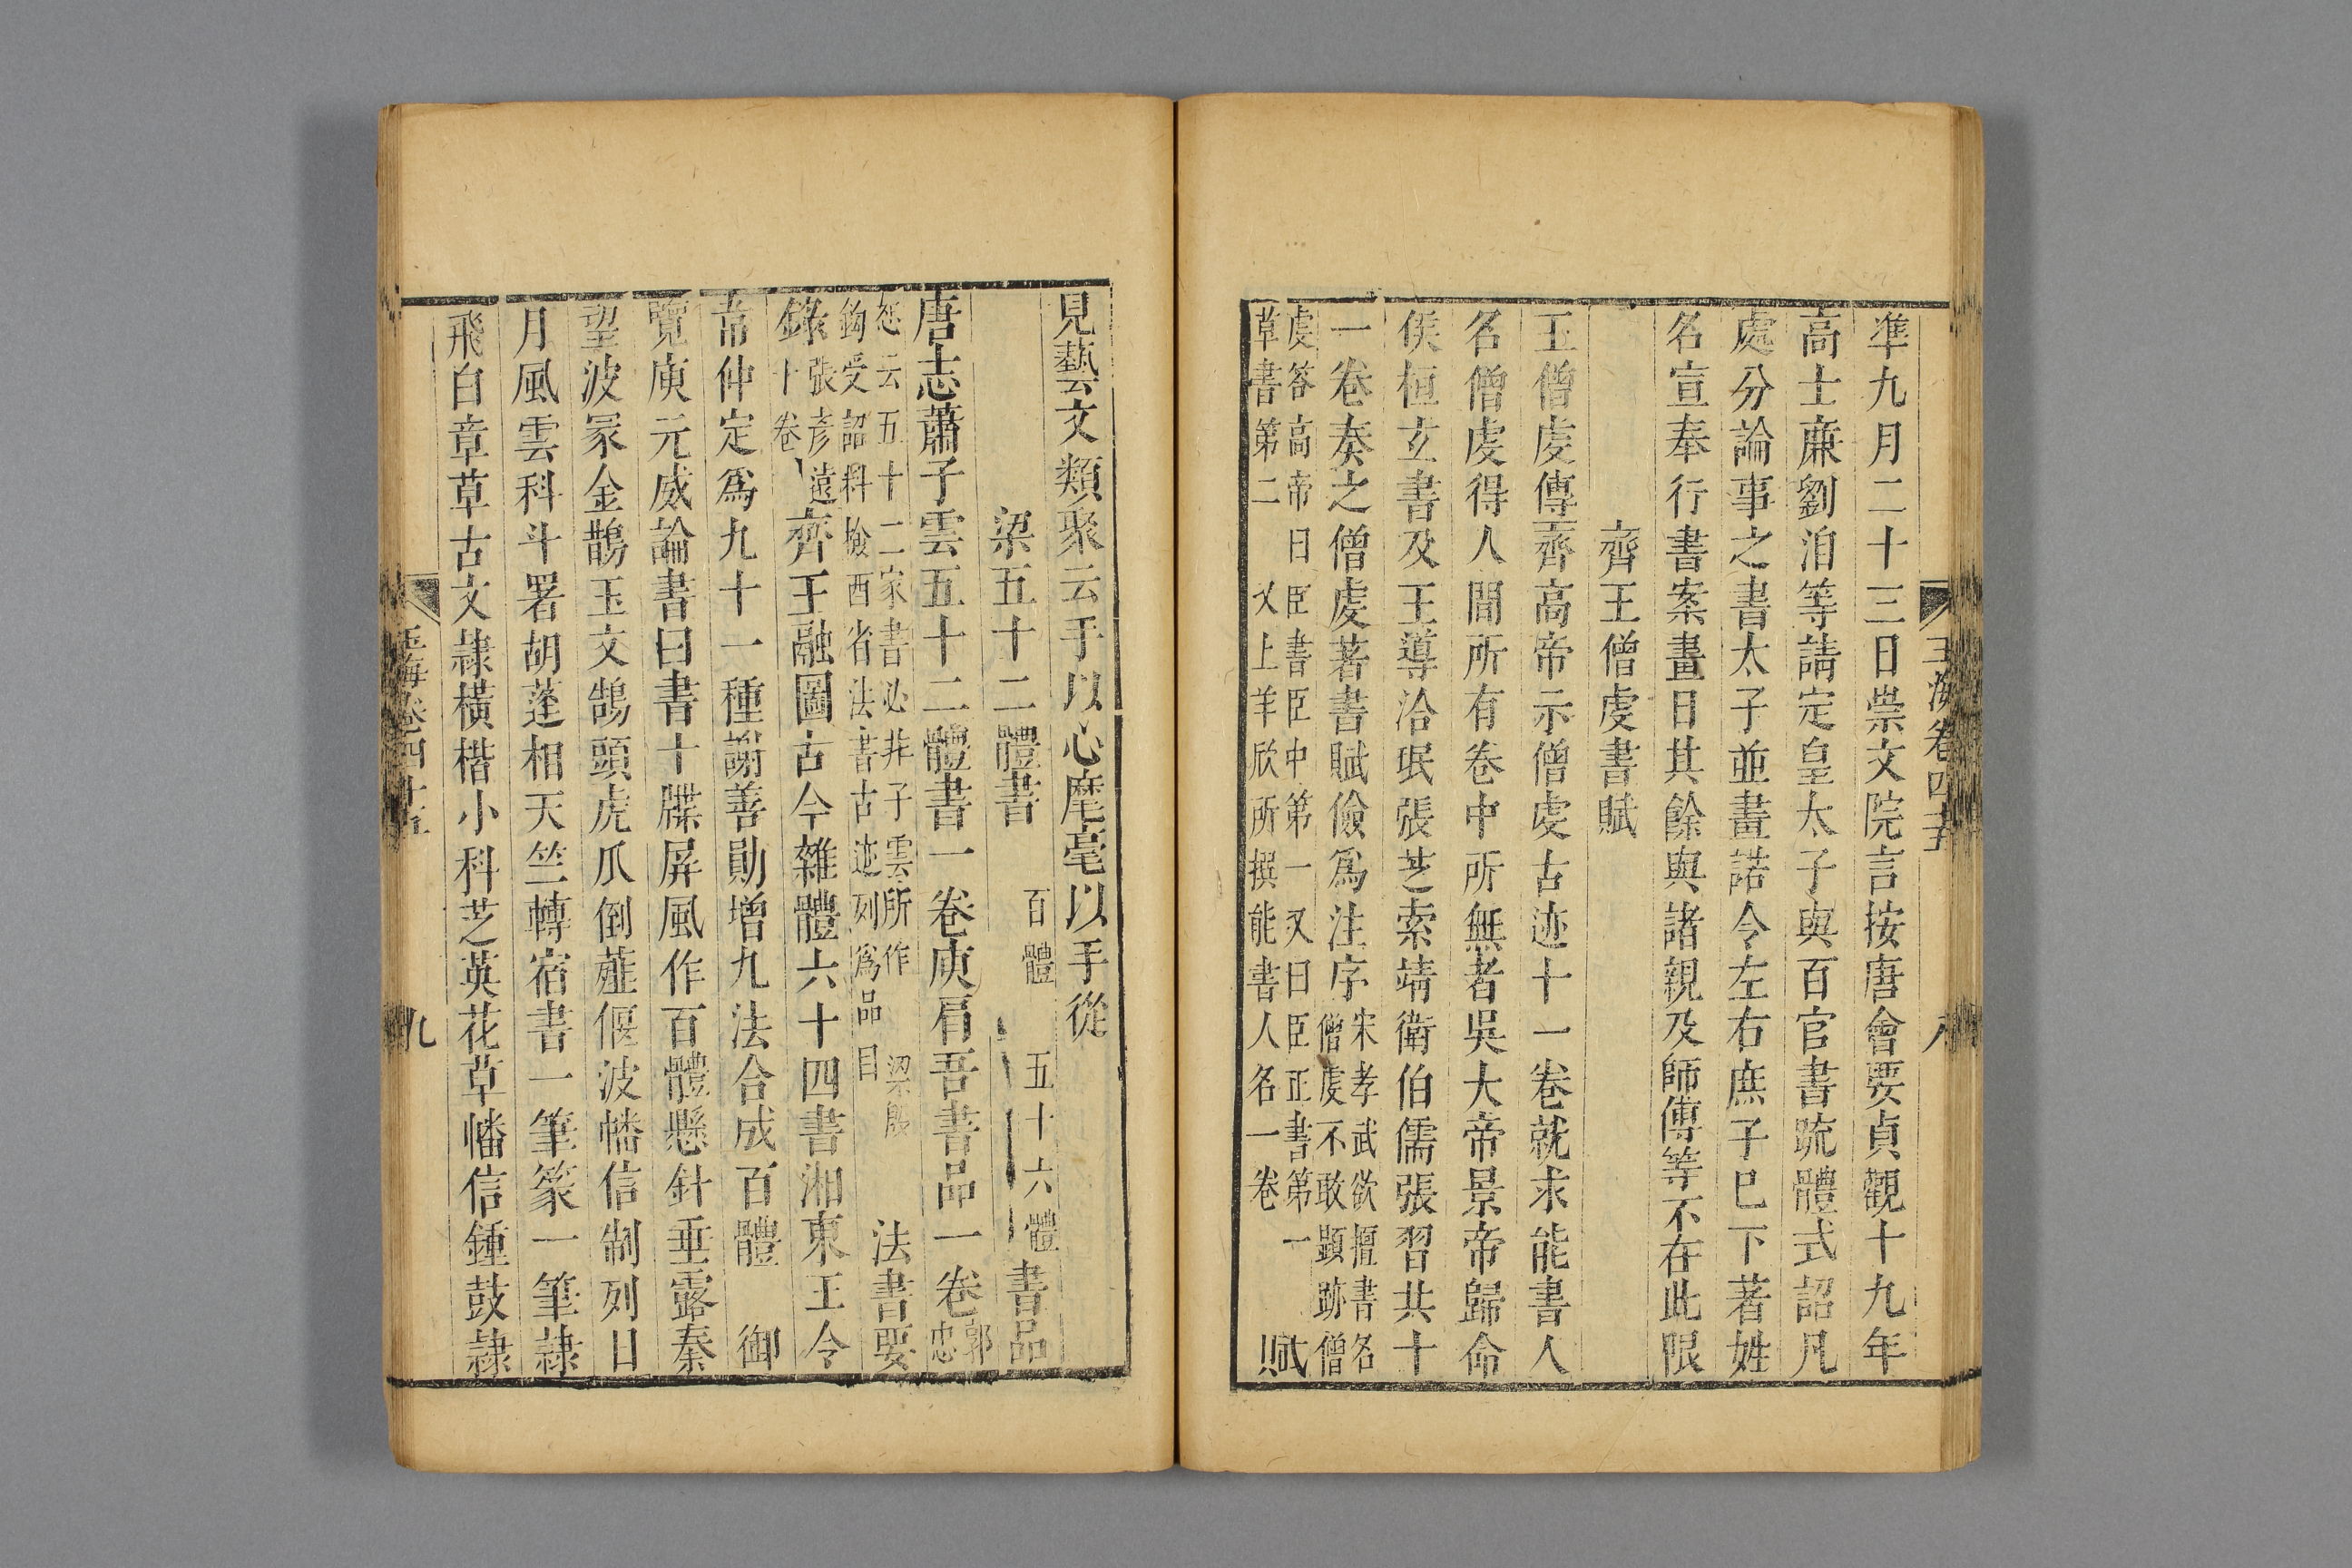 玉海卷四十五 八
準九月二十三日崇文院言按唐會要貞觀十九年
高士廉劉洎等請定皇太子與百官書疏體式詔凡
處分論事之書太子並畫諾令左右庶子已下著姓
名宣奉行書案畫日其餘與諸親及師傅等不在此限
齊王僧虔書賦
王僧虔傳齊高帝示僧虔古迹十一卷就求能書人
名僧虔得人間所有卷中所無者吳大帝景帝歸命
侯桓玄書及王導洽珉張芝索靖衛伯儒張翼共十
一卷奏之僧虔著書賦儉爲注序
宋孝武欲擅書名
僧虔不敢顯跡僧
虔答高帝曰臣書臣中第一又曰臣正書第一
草書第二 又上羊欣所撰能書人名一卷 賦
見藝文類聚云手以心麾毫以手從
梁五十二體書 百體 五十六體 書品
唐志蕭子雲五十二體書一卷庾肩吾書品一卷
郭
忠
恕云五十二家書必非子雲所作 梁殷
鈞受詔料檢西省法書古迹列爲品目
法書要
錄
張彥遠
十卷
齊王融圖古今雜體六十四書湘東王令
韋仲定爲九十一種謝善勛增九法合成百體 御
覽庾元威論書曰書十牒屏風作百體懸針垂露秦
望波冢金鵲玉文鵠頭虎爪倒薤偃波幡信制列日
月風雲科斗署胡蓬相天竺轉宿書一筆篆一筆隸
飛白章草古文隸橫楷小科芝英花草幡信鍾鼓隸
玉海卷四十五 九